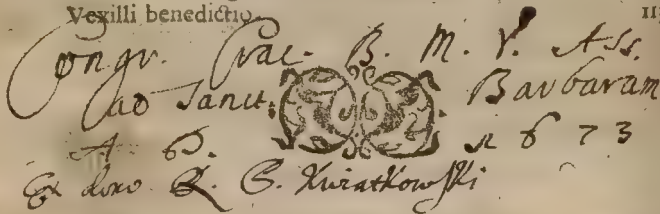 Vexilli benedictio.
Congr. Crac. B. M. V. Ass.
ad Sanct. Barbaram
A D. 1673
Ex dono Kwiatkowski